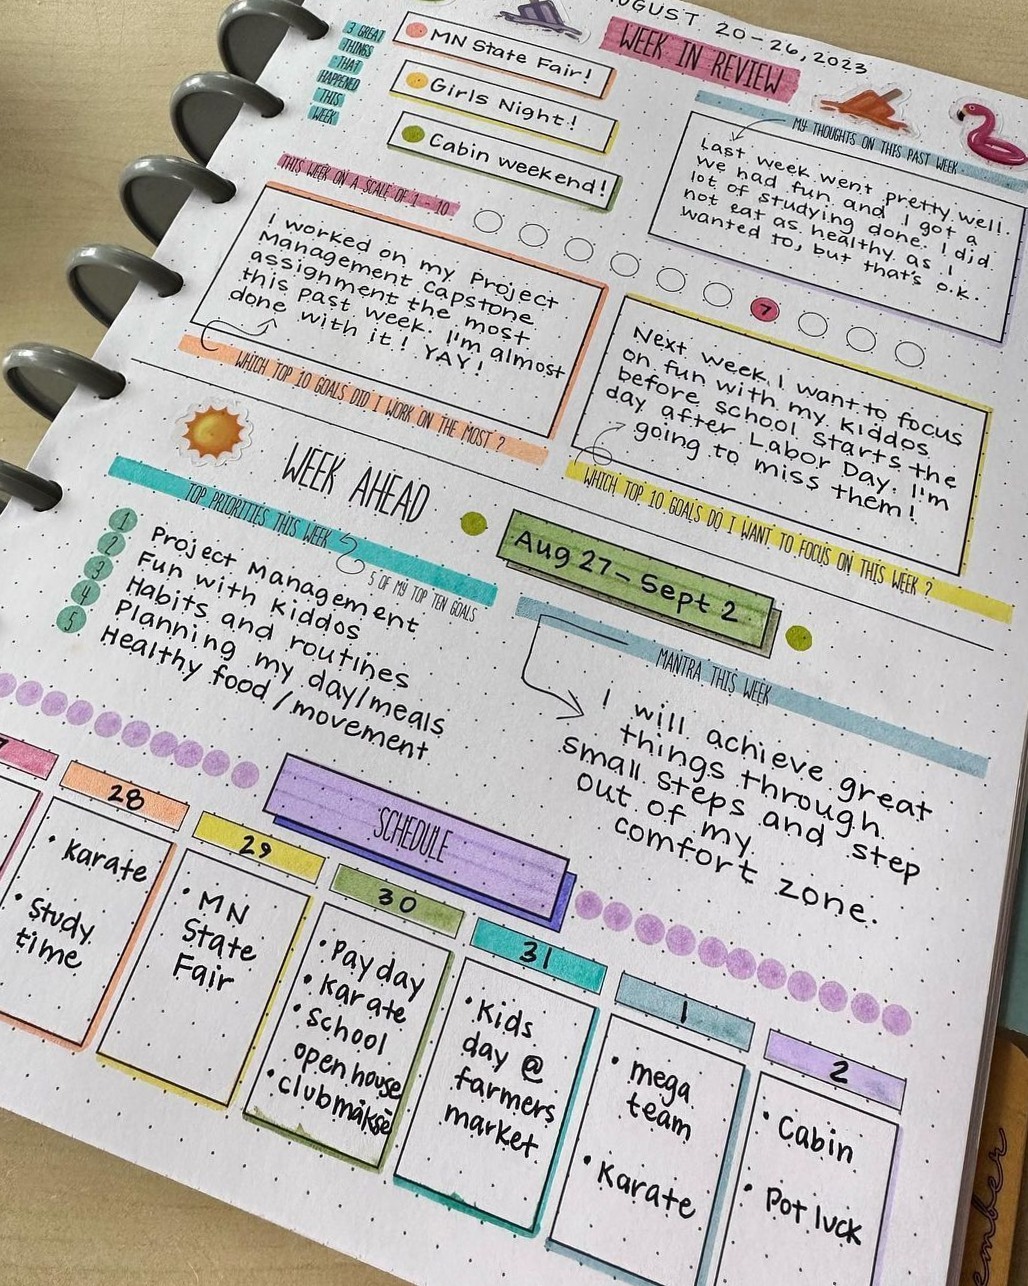 AUGUST 20-26, 2023
WEEK IN REVIEW
3 GREAT
THINGS
THAT
HAPPENED
THIS
WEEK
MN State Fair!
Girls Night!
Cabin weekend!
MY THOUGHTS ON THIS PAST WEEK
Last week went pretty well.
We had fun and I got a
lot of studying done. I did
not eat as healthy as I
wanted to, but that's o.k.
THIS WEEK ON A SCALE OF 1 - 10
7
I worked on my Project
Management Capstone
assignment the most
this past week. I'm almost
done with it! YAY!
WHICH TOP 10 GOALS DID I WORK ON THE MOST?
Next week, I want to focus
on fun with my kiddos
before school starts the
day after Labor Day. I'm
going to miss them!
WHICH TOP 10 GOALS DO I WANT TO FOCUS ON THIS WEEK?
WEEK AHEAD
Aug 27 - Sept 2
TOP PRIORITIES THIS WEEK
5 OF MY TOP TEN GOALS
1 Project Management
2 Fun with kiddos
3 Habits and routines
4 Planning my day/meals
5 Healthy food/movement
MANTRA THIS WEEK
I will achieve great
things through
small steps and step
out of my
comfort zone.
SCHEDULE
28
• Karate
• Study
time
29
• MN
State
Fair
30
• Pay day
• Karate
• School
open house
• club makse
31
• Kids
day @
farmers
market
1
• mega
team
• Karate
2
• Cabin
• Pot luck
ember